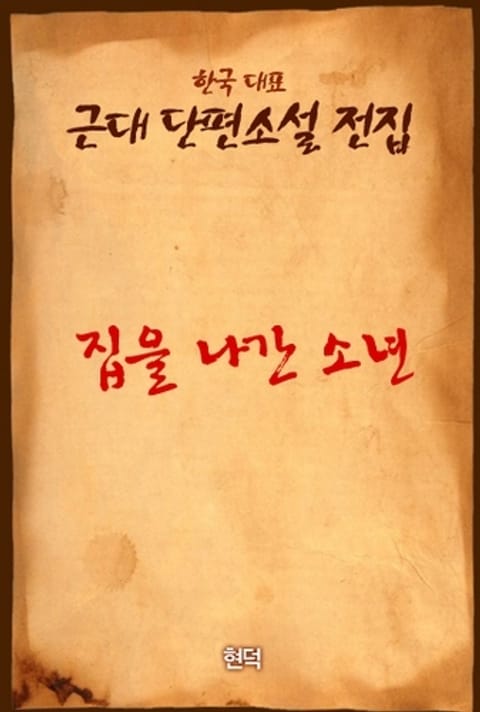 한국 대표
근대 단편소설 전집
집을 나간 소년
현덕